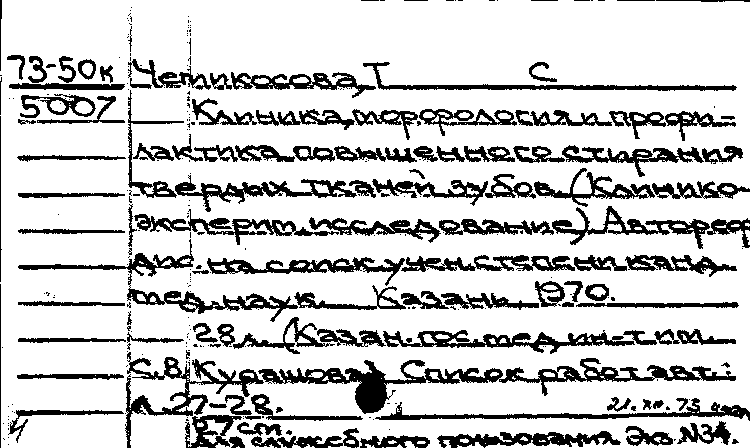 73-50к Четикосова, Т С
5007 Клиника, морфология и профи-
лактика повышенного стирания
твердых тканей зубов. (Клинико-
эксперим. исследование). Автореф.
дис. на соиск. учен. степени канд.
мед. наук. Казань, 1970.
28 л. (Казан. гос. мед. ин-т им.
С.В. Курашова). Список работ авт.:
л. 27-28. 21.XII.73
27 cm.
Для служебного пользования. Экз. №34.